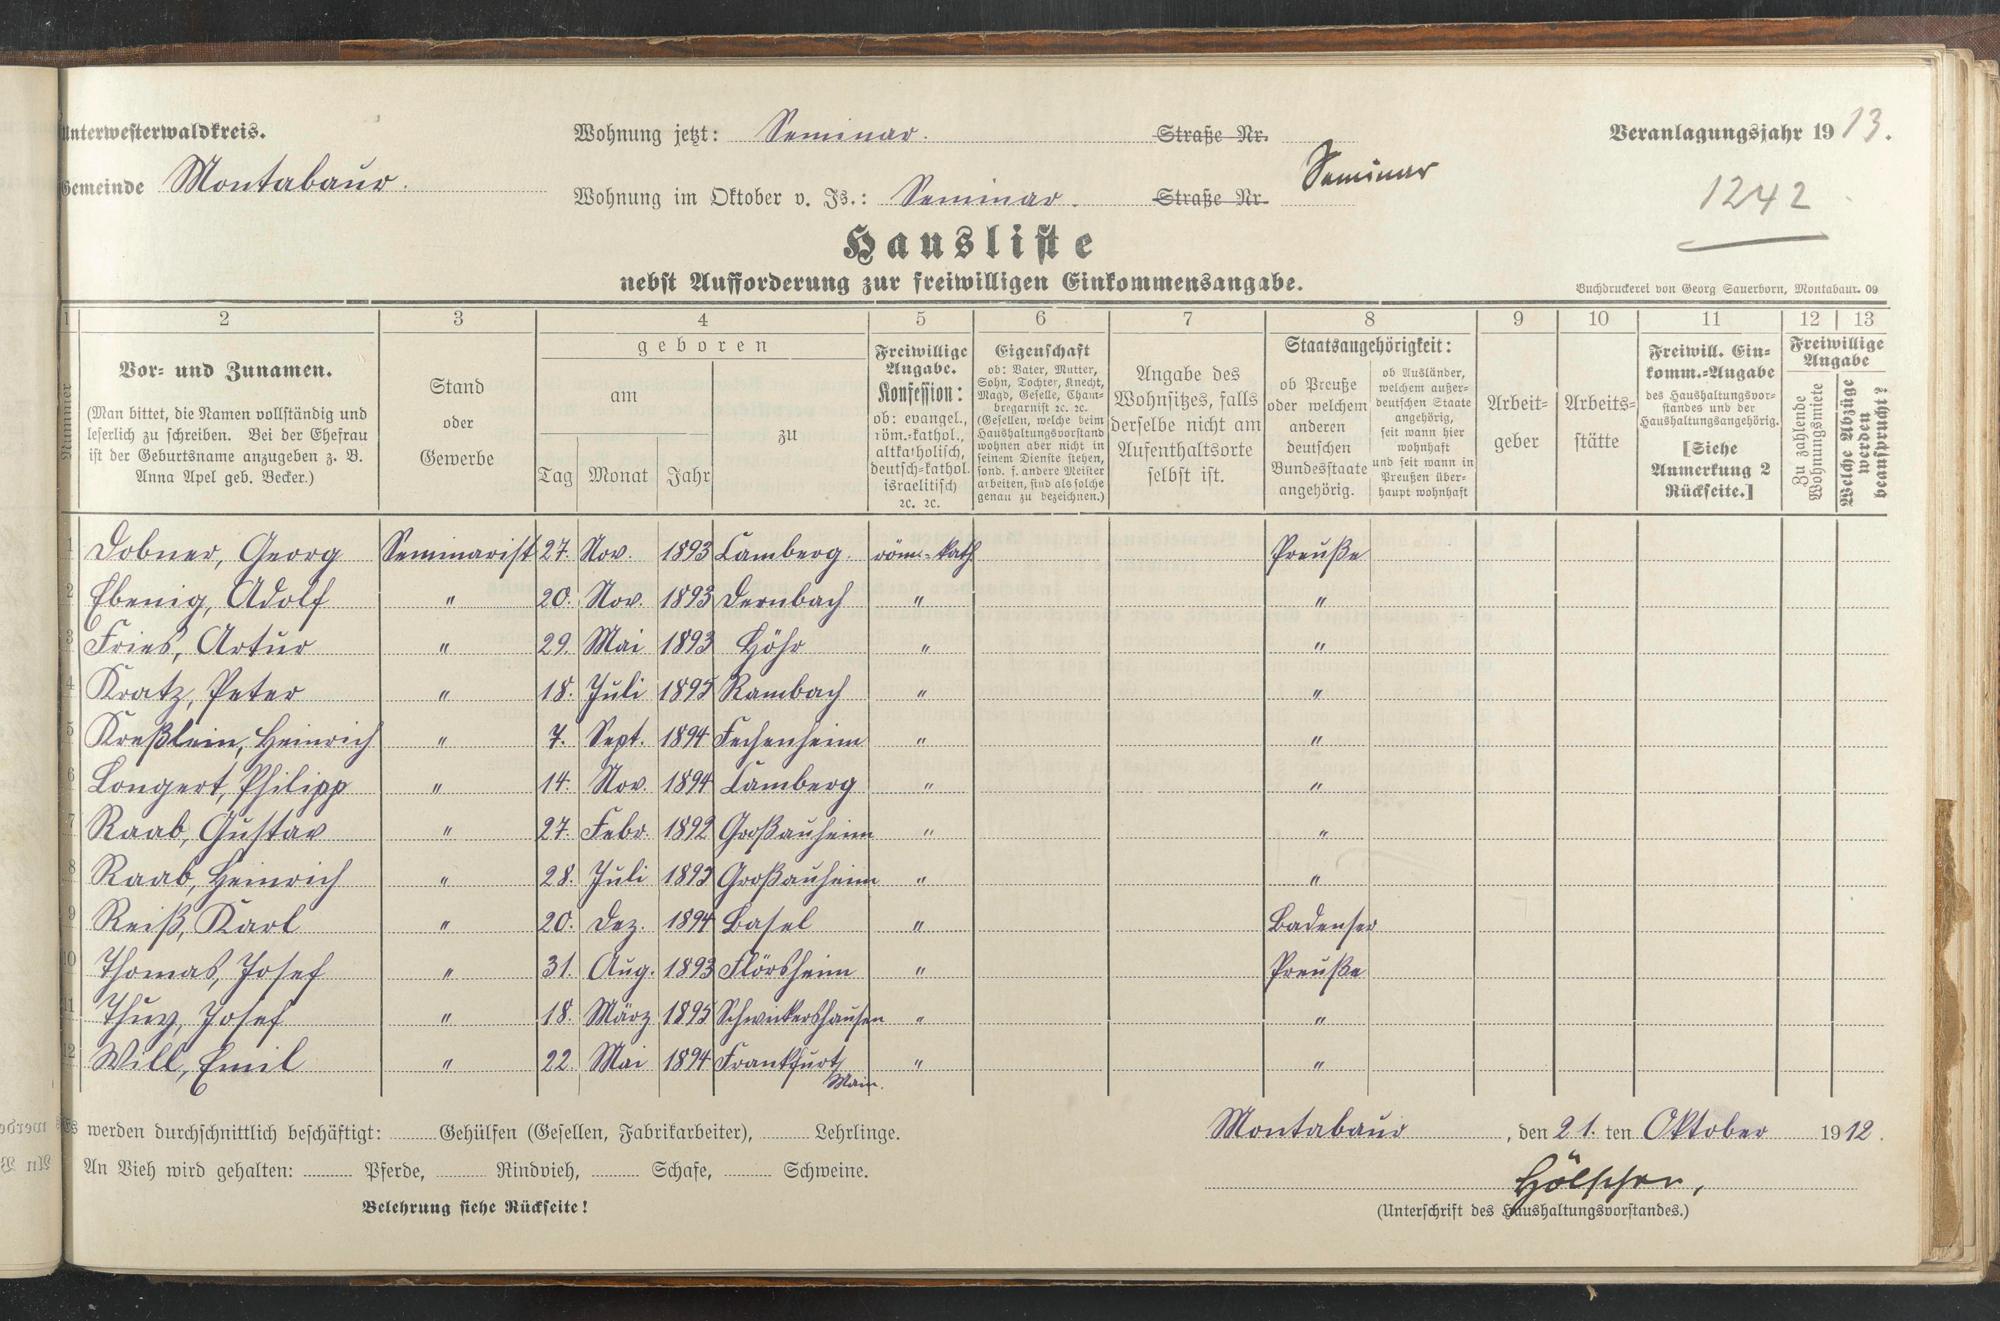 Unterwesterwaldkreis.
Gemeinde Montabaur.
Wohnung jetzt: Seminar. Straße Nr.
Wohnung im Oktober v. Js.: Seminar. Straße Nr.
Seminar
Veranlagungsjahr 1913.
1242
Hausliste
nebst Aufforderung zur freiwilligen Einkommensangabe.
Buchdruckerei von Georg Sauerborn, Montabaur. 09
1 2 3 4 5 6 7 8 9 10 11 12 13
Nummer
Vor- und Zunamen.
(Man bittet, die Namen vollständig und
leserlich zu schreiben. Bei der Ehefrau
ist der Geburtsname anzugeben z. B.
Anna Apel geb. Becker.)
Stand
oder
Gewerbe
geboren
am
Tag Monat Jahr
zu
Freiwillige
Angabe.
Konfession:
ob: evangel.,
röm.-kathol.,
altkatholisch,
deutsch-kathol.
israelitisch
2c. 2c.
Eigenschaft
ob: Vater, Mutter,
Sohn, Tochter, Knecht,
Magd, Geselle, Cham-
bregarnist 2c. 2c.
(Gesellen, welche beim
Haushaltungsvorstand
wohnen aber nicht in
seinem Dienste stehen,
sond. f. andere Meister
arbeiten, sind als solche
genau zu bezeichnen.)
Angabe des
Wohnsitzes, falls
derselbe nicht am
Aufenthaltsorte
selbst ist.
Staatsangehörigkeit:
ob Preuße
oder welchem
anderen
deutschen
Bundesstaate
angehörig.
ob Ausländer,
welchem außer-
deutschen Staate
angehörig,
seit wann hier
wohnhaft
und seit wann in
Preußen über-
haupt wohnhaft
Arbeit-
geber
Arbeits-
stätte
Freiwill. Ein-
komm.-Angabe
des Haushaltungsvor-
standes und der
Haushaltungsangehörig.
[Siehe
Anmerkung 2
Rückseite.]
Freiwillige
Angabe
Zu zahlende
Wohnungsmiete
Welche Abzüge
werden
beansprucht?
1 Dobner, Georg Seminarist 27. Nov. 1893 Camberg. röm.-kath. Preuße
2 Ebenig, Adolf " 20. Nov. 1893 Dernbach " "
3 Fries, Artur " 29. Mai 1893 Höhr " "
4 Kratz, Peter " 18. Juli 1895 Rambach " "
5 Kreßlein, Heinrich " 7. Sept. 1894 Fechenheim " "
6 Longert, Philipp " 14. Nov. 1894 Camberg " "
7 Raab, Gustav " 27. Febr. 1892 Großauheim " "
8 Raab, Heinrich " 28. Juli 1893 Großauheim " "
9 Reiß, Karl " 20. Dez. 1894 Basel " Badenser
10 Thomas, Josef " 31. Aug. 1893 Flörsheim " Preuße
11 Thuy, Josef " 18. März 1895 Schwickershausen " "
12 Will, Emil " 22. Mai 1894 Frankfurt " "
Main.
Es werden durchschnittlich beschäftigt: Gehülfen (Gesellen, Fabrikarbeiter), Lehrlinge.
An Vieh wird gehalten: Pferde, Rindvieh, Schafe, Schweine.
Belehrung siehe Rückseite!
Montabaur, den 21. ten Oktober 1912.
Hölscher,
(Unterschrift des Haushaltungsvorstandes.)